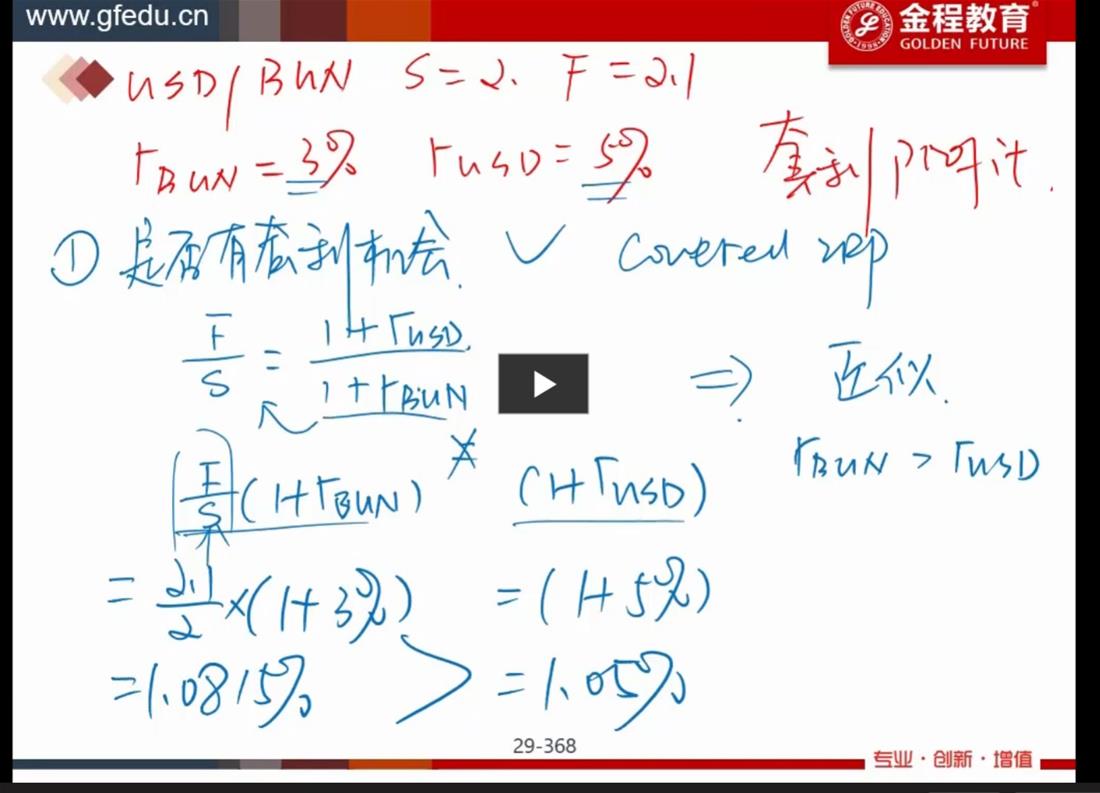 www.gfedu.cn
金程教育
GOLDEN FUTURE
USD/BUN S=2. F=2.1
rBUN=3% rUSD=5% 套利profit.
① 是否有套利机会. ✓ Covered IRP
F/S = 1+rUSD. / 1+rBUN ⇒ 近似.
rBUN > rUSD
F/S (1+rBUN) (1+rUSD)
= 2.1/2 ×(1+3%) =(1+5%)
=1.0815% > =1.05%
29-368
专业·创新·增值